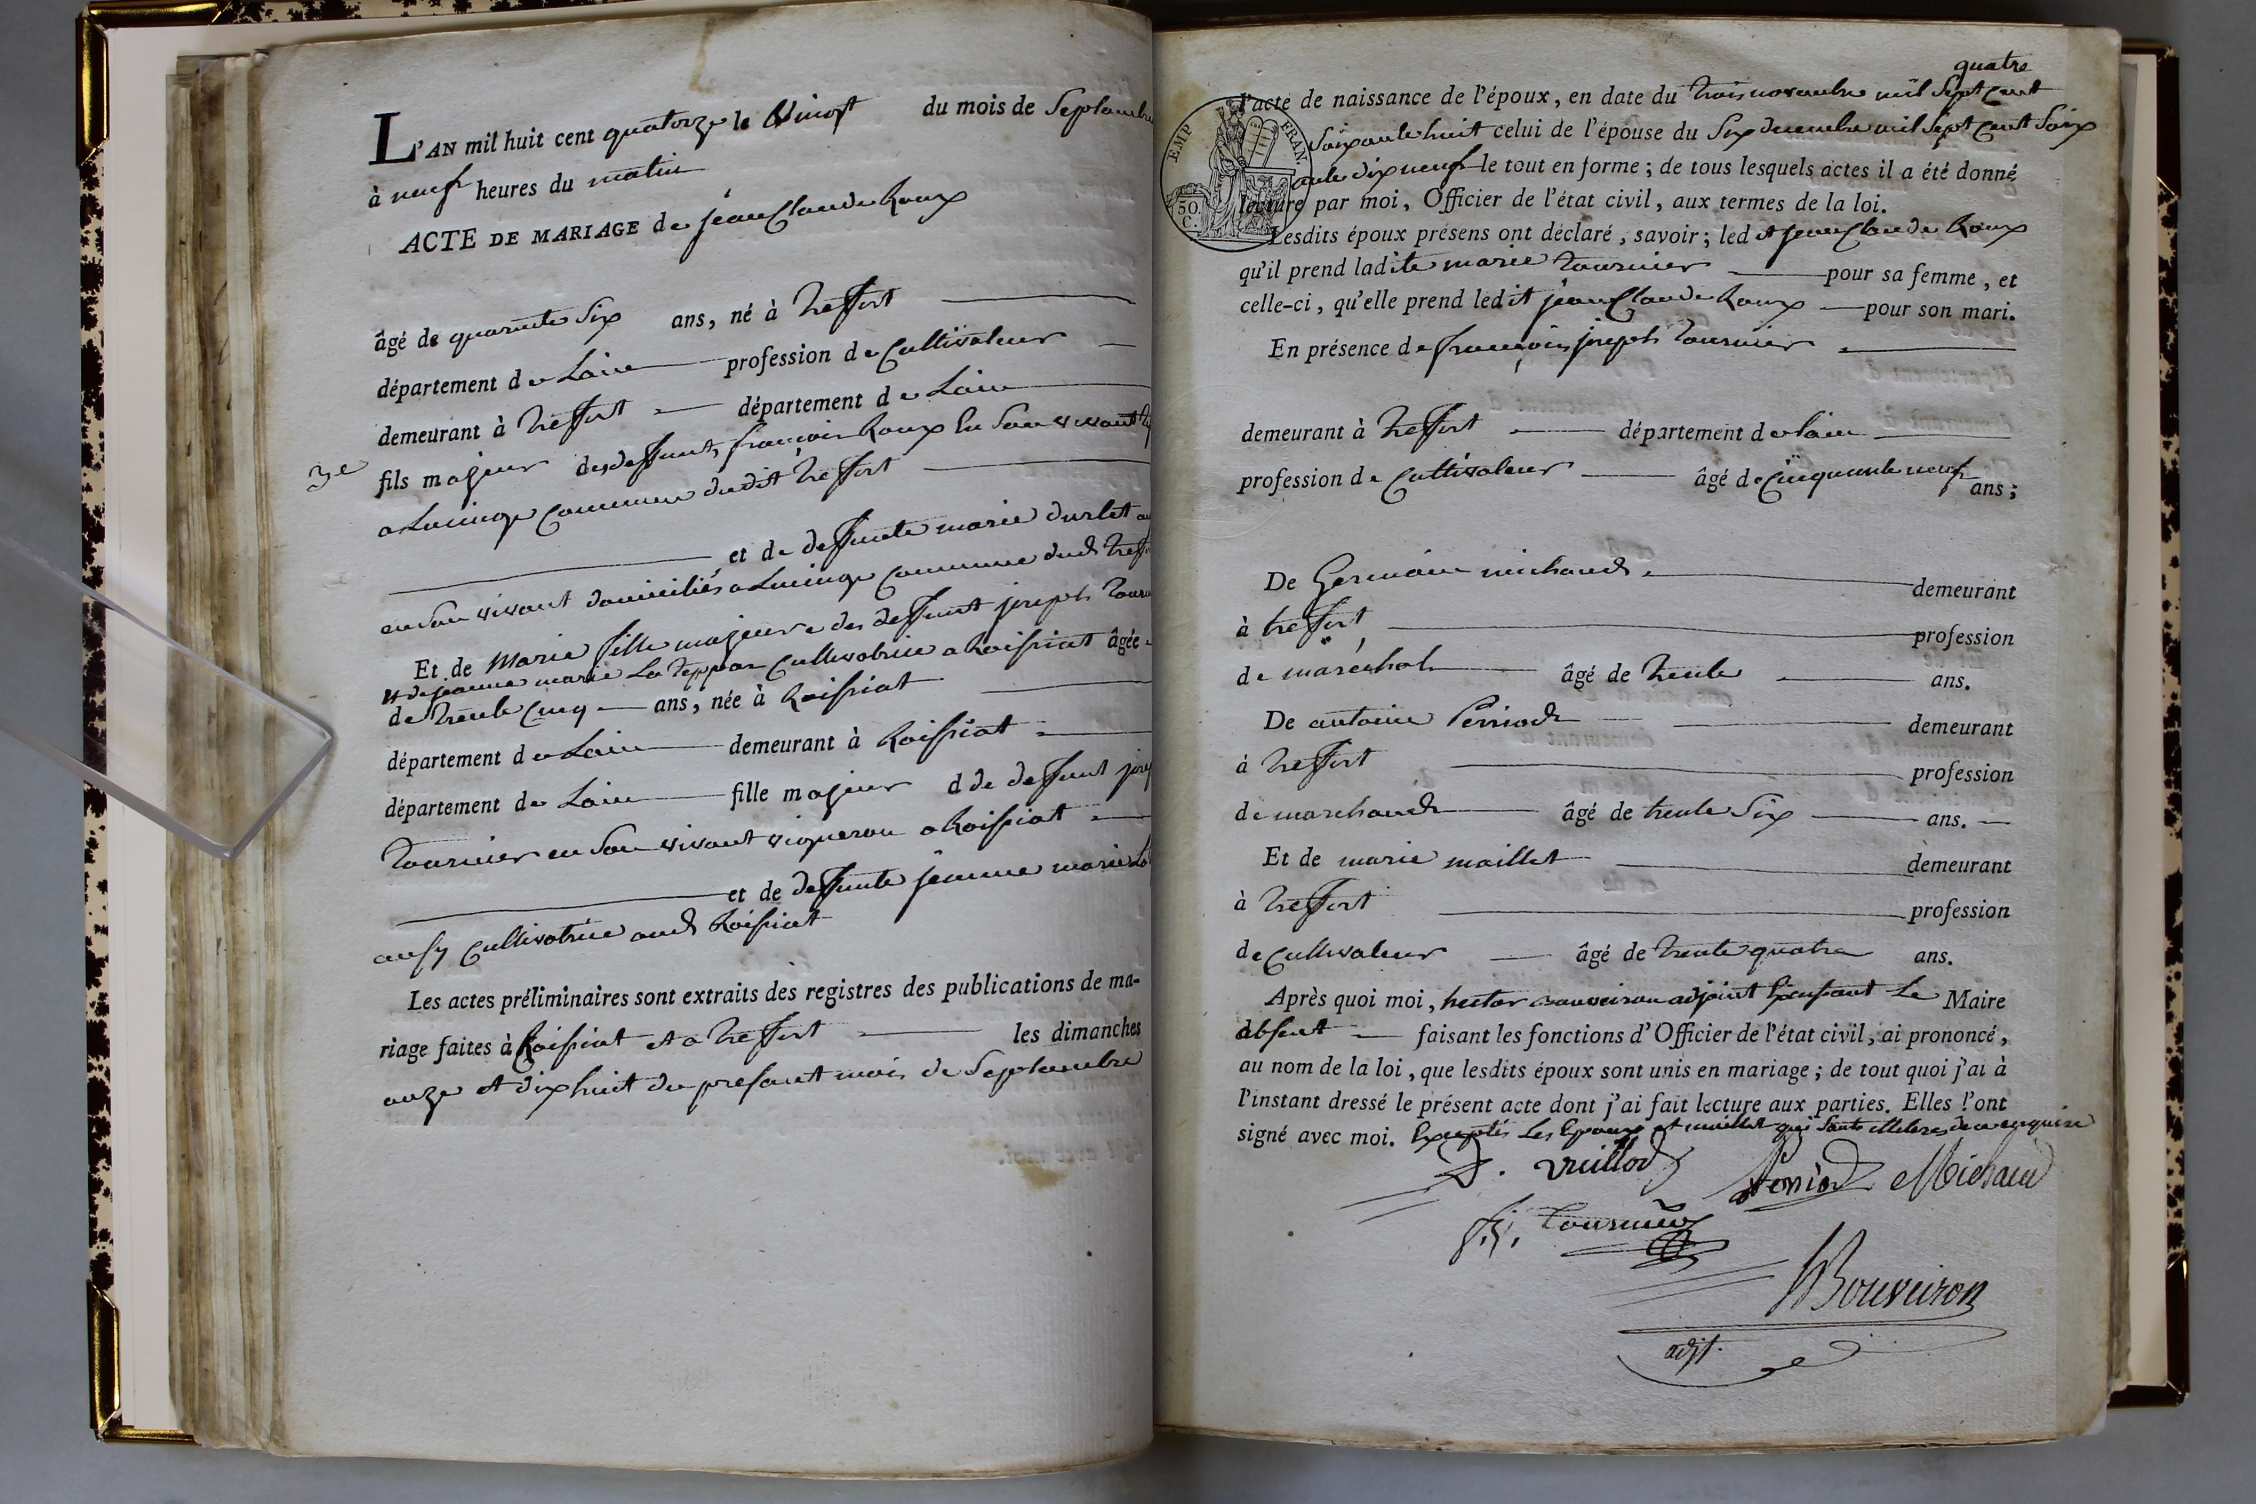 L'AN mil huit cent quatorze le Vingt du mois de Septembre
à neuf heures du matin
ACTE DE MARIAGE de jean Claude Roux
âgé de quarente Six ans, né à Treffort
département de Lain profession de Cultivateur
demeurant à Treffort département de Lain
3e
fils majeur des deffunts françois Roux En Son vivant
a Lucinge Commune dudit Treffort
et de deffunte marie durlet
en Son vivant domiciliés a Lucinge Commune dud Treff
Et de Marie fille majeure de deffunt joseph Tourn
et de jeanne marie La Teppar Cultivatrice a Roissiat âgée
de Trente Cinq ans, née à Roissiat
département de Lain demeurant à Roissiat
département de Lain fille majeur d de deffunt jos
Tournier en Son vivant vigneron a Roissiat
et de deffunte jeanne marie La
aussy Cultivatrice aud Roissiat
Les actes préliminaires sont extraits des registres des publications de ma-
riage faites à Roissiat et a Treffort les dimanches
onze et dix huit du present mois de Septembre
quatre
l'acte de naissance de l'époux, en date du trois novembre mil Sept Cent
EMP FRAN.
50. C.
Soixante huit celui de l'épouse du Six decembre mil Sept Cent Soix
ante dix neuf le tout en forme ; de tous lesquels actes il a été donné
lecture par moi, Officier de l'état civil, aux termes de la loi.
Lesdits époux présens ont déclaré, savoir ; led it jean Claude Roux
qu'il prend ladite marie Tournier pour sa femme, et
celle-ci, qu'elle prend ledit jean Claude Roux pour son mari.
En présence de françois joseph Tournier
demeurant à Treffort département de lain
profession de Cultivateur âgé de Cinquante neuf ans ;
De Germain michaud demeurant
à treffort profession
de maréchal âgé de Trente ans.
De antoine Perriod demeurant
à Treffort profession
de marchand âgé de trente Six ans.
Et de marie maillet demeurant
à Treffort profession
de Cultivateur âgé de Trente quatre ans.
Après quoi moi, hector Bouveiron adjoint Le Maire
absent faisant les fonctions d'Officier de l'état civil, ai prononcé,
au nom de la loi, que lesdits époux sont unis en mariage ; de tout quoi j'ai à
l'instant dressé le présent acte dont j'ai fait lecture aux parties. Elles l'ont
signé avec moi. Exceptés Les Epoux et maillet qui Sont illiteres de ce enquise
J. vuillod Perriod Michaud
f. j. Tournier
HBouveiron
adjt.